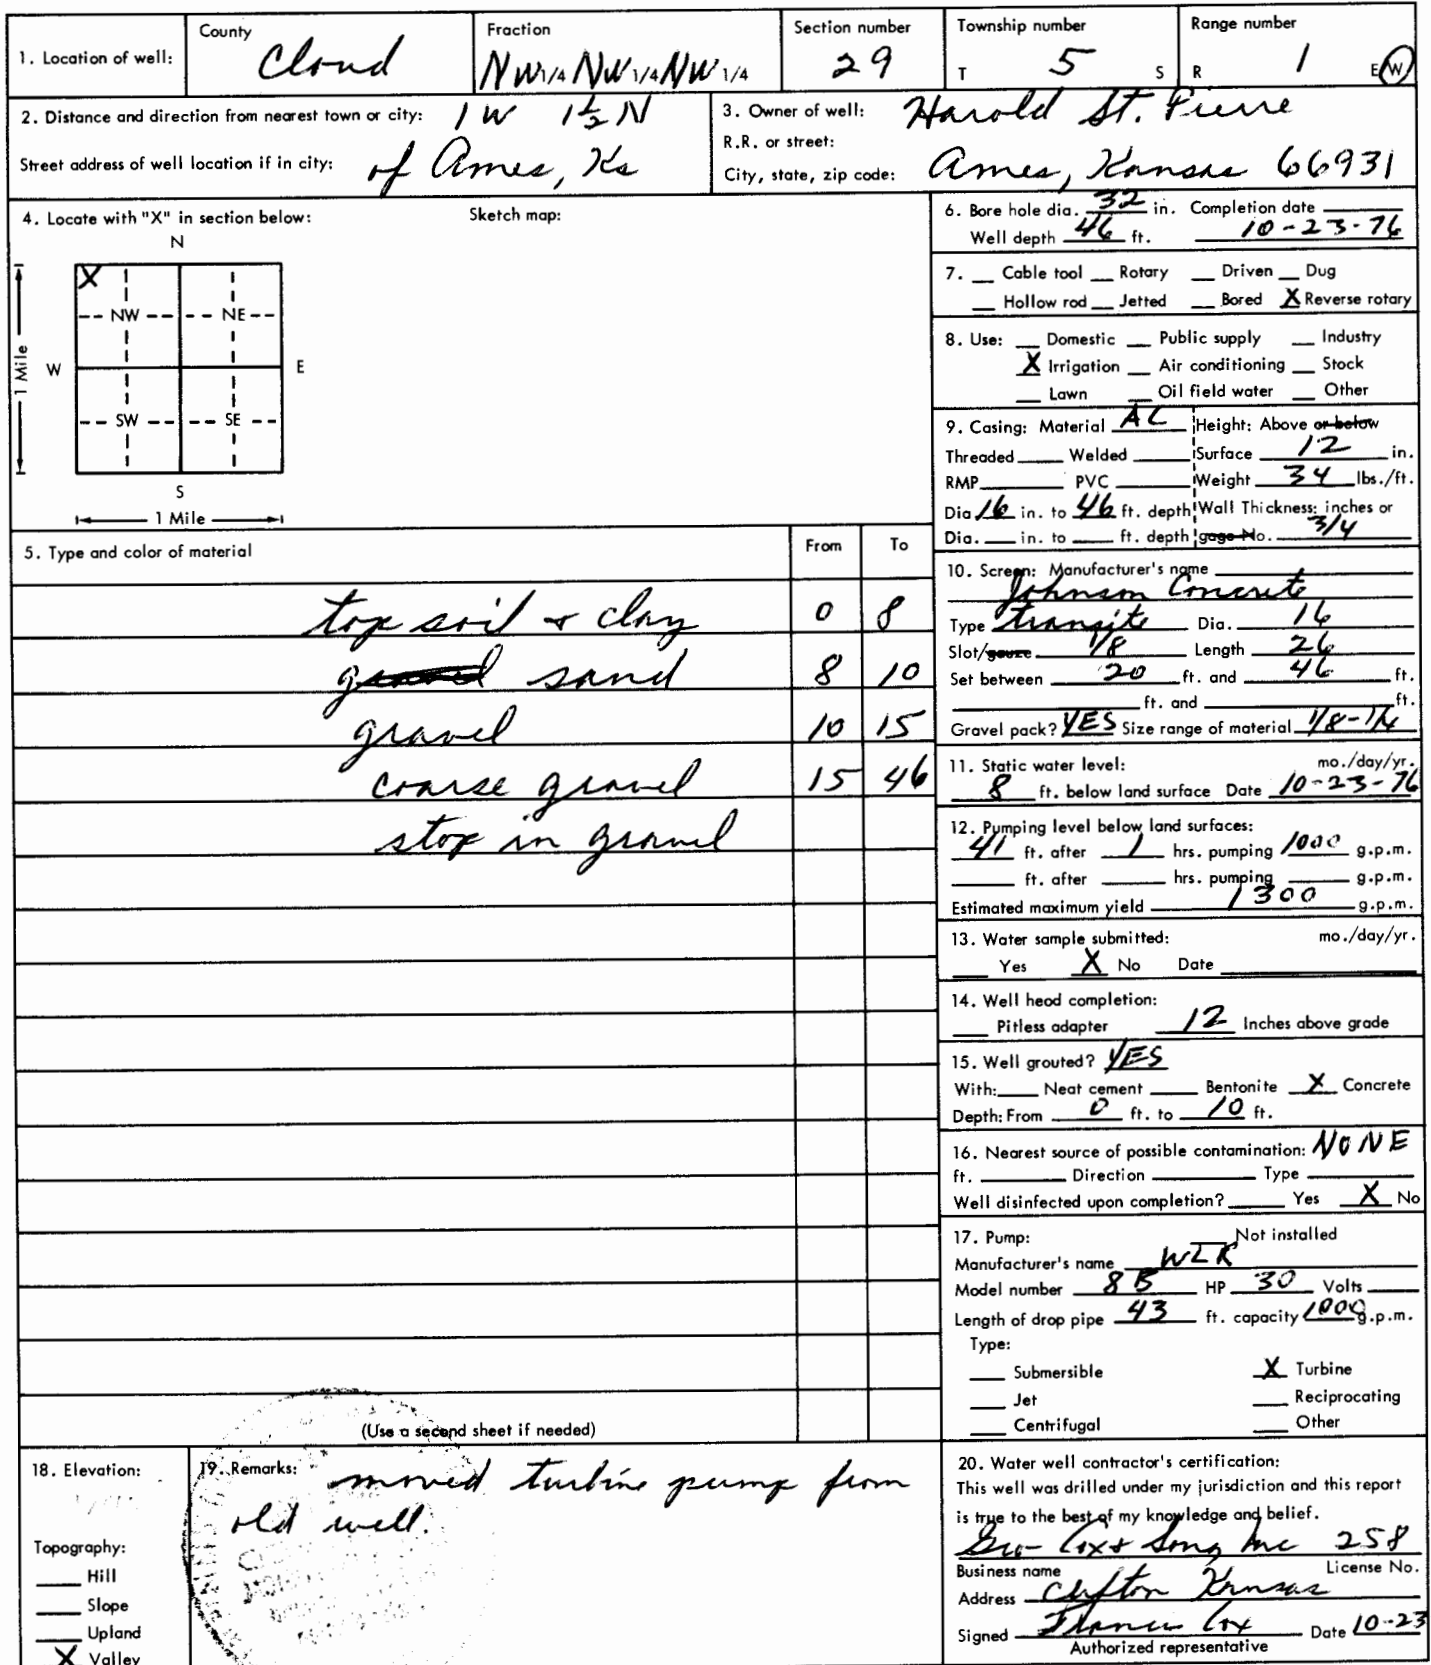 1. Location of well: County Cloud Fraction NW 1/4 NW 1/4 NW 1/4 Section number 29 Township number T 5 S Range number R 1 E W
2. Distance and direction from nearest town or city: 1 W 1½ N
Street address of well location if in city: of Ames, Ks
3. Owner of well: Harold St. Pierre
R.R. or street:
City, state, zip code: Ames, Kansas 66931
4. Locate with "X" in section below: Sketch map:
N
X
NW NE
W E
1 Mile
SW SE
S
1 Mile
5. Type and color of material From To
top soil & clay 0 8
gravel sand 8 10
gravel 10 15
coarse gravel 15 46
stop in gravel
(Use a second sheet if needed)
6. Bore hole dia. 32 in. Completion date
Well depth 46 ft. 10-23-76
7. __ Cable tool __ Rotary __ Driven __ Dug
__ Hollow rod __ Jetted __ Bored X Reverse rotary
8. Use: __ Domestic __ Public supply __ Industry
X Irrigation __ Air conditioning __ Stock
__ Lawn __ Oil field water __ Other
9. Casing: Material AC Height: Above or below
Threaded ____ Welded ____ Surface 12 in.
RMP ____ PVC ____ Weight 34 lbs./ft.
Dia 16 in. to 46 ft. depth Wall Thickness: inches or
Dia. __ in. to __ ft. depth gage No. 3/4
10. Screen: Manufacturer's name
Johnson Concrete
Type transite Dia. 16
Slot/gauze 1/8 Length 26
Set between 20 ft. and 46 ft.
____ ft. and ____ ft.
Gravel pack? YES Size range of material 1/8-1/4
11. Static water level: mo./day/yr.
8 ft. below land surface Date 10-23-76
12. Pumping level below land surfaces:
41 ft. after 1 hrs. pumping 1000 g.p.m.
____ ft. after ____ hrs. pumping ____ g.p.m.
Estimated maximum yield 1300 g.p.m.
13. Water sample submitted: mo./day/yr.
__ Yes X No Date ____
14. Well head completion:
__ Pitless adapter 12 Inches above grade
15. Well grouted? YES
With: __ Neat cement __ Bentonite X Concrete
Depth: From 0 ft. to 10 ft.
16. Nearest source of possible contamination: NONE
ft. ____ Direction ____ Type ____
Well disinfected upon completion? __ Yes X No
17. Pump: __ Not installed
Manufacturer's name WLR
Model number 8B HP 30 Volts __
Length of drop pipe 43 ft. capacity 1000 g.p.m.
Type:
__ Submersible X Turbine
__ Jet __ Reciprocating
__ Centrifugal __ Other
18. Elevation:
Topography:
__ Hill
__ Slope
__ Upland
X Valley
19. Remarks: moved turbine pump from
old well.
20. Water well contractor's certification:
This well was drilled under my jurisdiction and this report
is true to the best of my knowledge and belief.
Geo Cox & Sons, Inc 258
Business name License No.
Address Clifton Kansas
Signed Francis Cox Date 10-23
Authorized representative